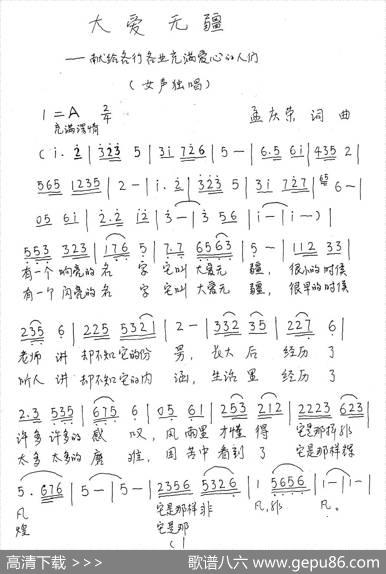 大爱无疆
——献给各行各业充满爱心的人们
(女声独唱)
1=A 2/4 孟庆荣 词 曲
充满深情
(i. 2 | 3 2 3 5 | 3 i 7 2 6 | 5 - | 6. 5 6 i | 4 3 5 2 |
5 6 5 1 2 3 5 | 2 - | i. 2 | 3 2 3 5 | 3 i 7 2 7 | 6 - |
0 5 6 i | 2. 2 i 2 | 3 - | 3 5 6 | i - | i -) |
5 5 3 3 2 3 | 1 7 6 5 | 7. 7 6 5 6 3 | 5 - | 1 1 2 3 3 |
有一个 响亮的 名 字 它叫 大爱无 疆, 很小的 时候
有一个 闪亮的 名 字 它叫 大爱无 疆, 很早的 时候
2 3 5 6 | 2 2 5 5 3 2 | 2 - | 3 3 2 3 5 | 2 2 7 6 |
老师 讲 却不知 它的份 男, 长大 后 经历 了
听人 讲 却不知 它的内 涵, 生活 里 经历 了
2. 3 5 3 5 | 6 7 5 6 | 0 5 6 1 | 2 5 3 2 1 2 | 2 2 2 3 6 2 3 |
许多 许多的 感 叹, 风 雨里 才懂 得 它是那样 非
太多 太多的 磨 难, 困 苦中 看到 了 它是那样 辉
5. 6 7 6 | 5 - | 5 - | 2 3 5 6 5 3 2 6 | 1 5 6 5 6 | 1 - | 1 - |
凡 它是那样 非 凡,非 凡。
煌 它是那
(1
高清下载 >>> 歌谱八六 www.gepu86.com